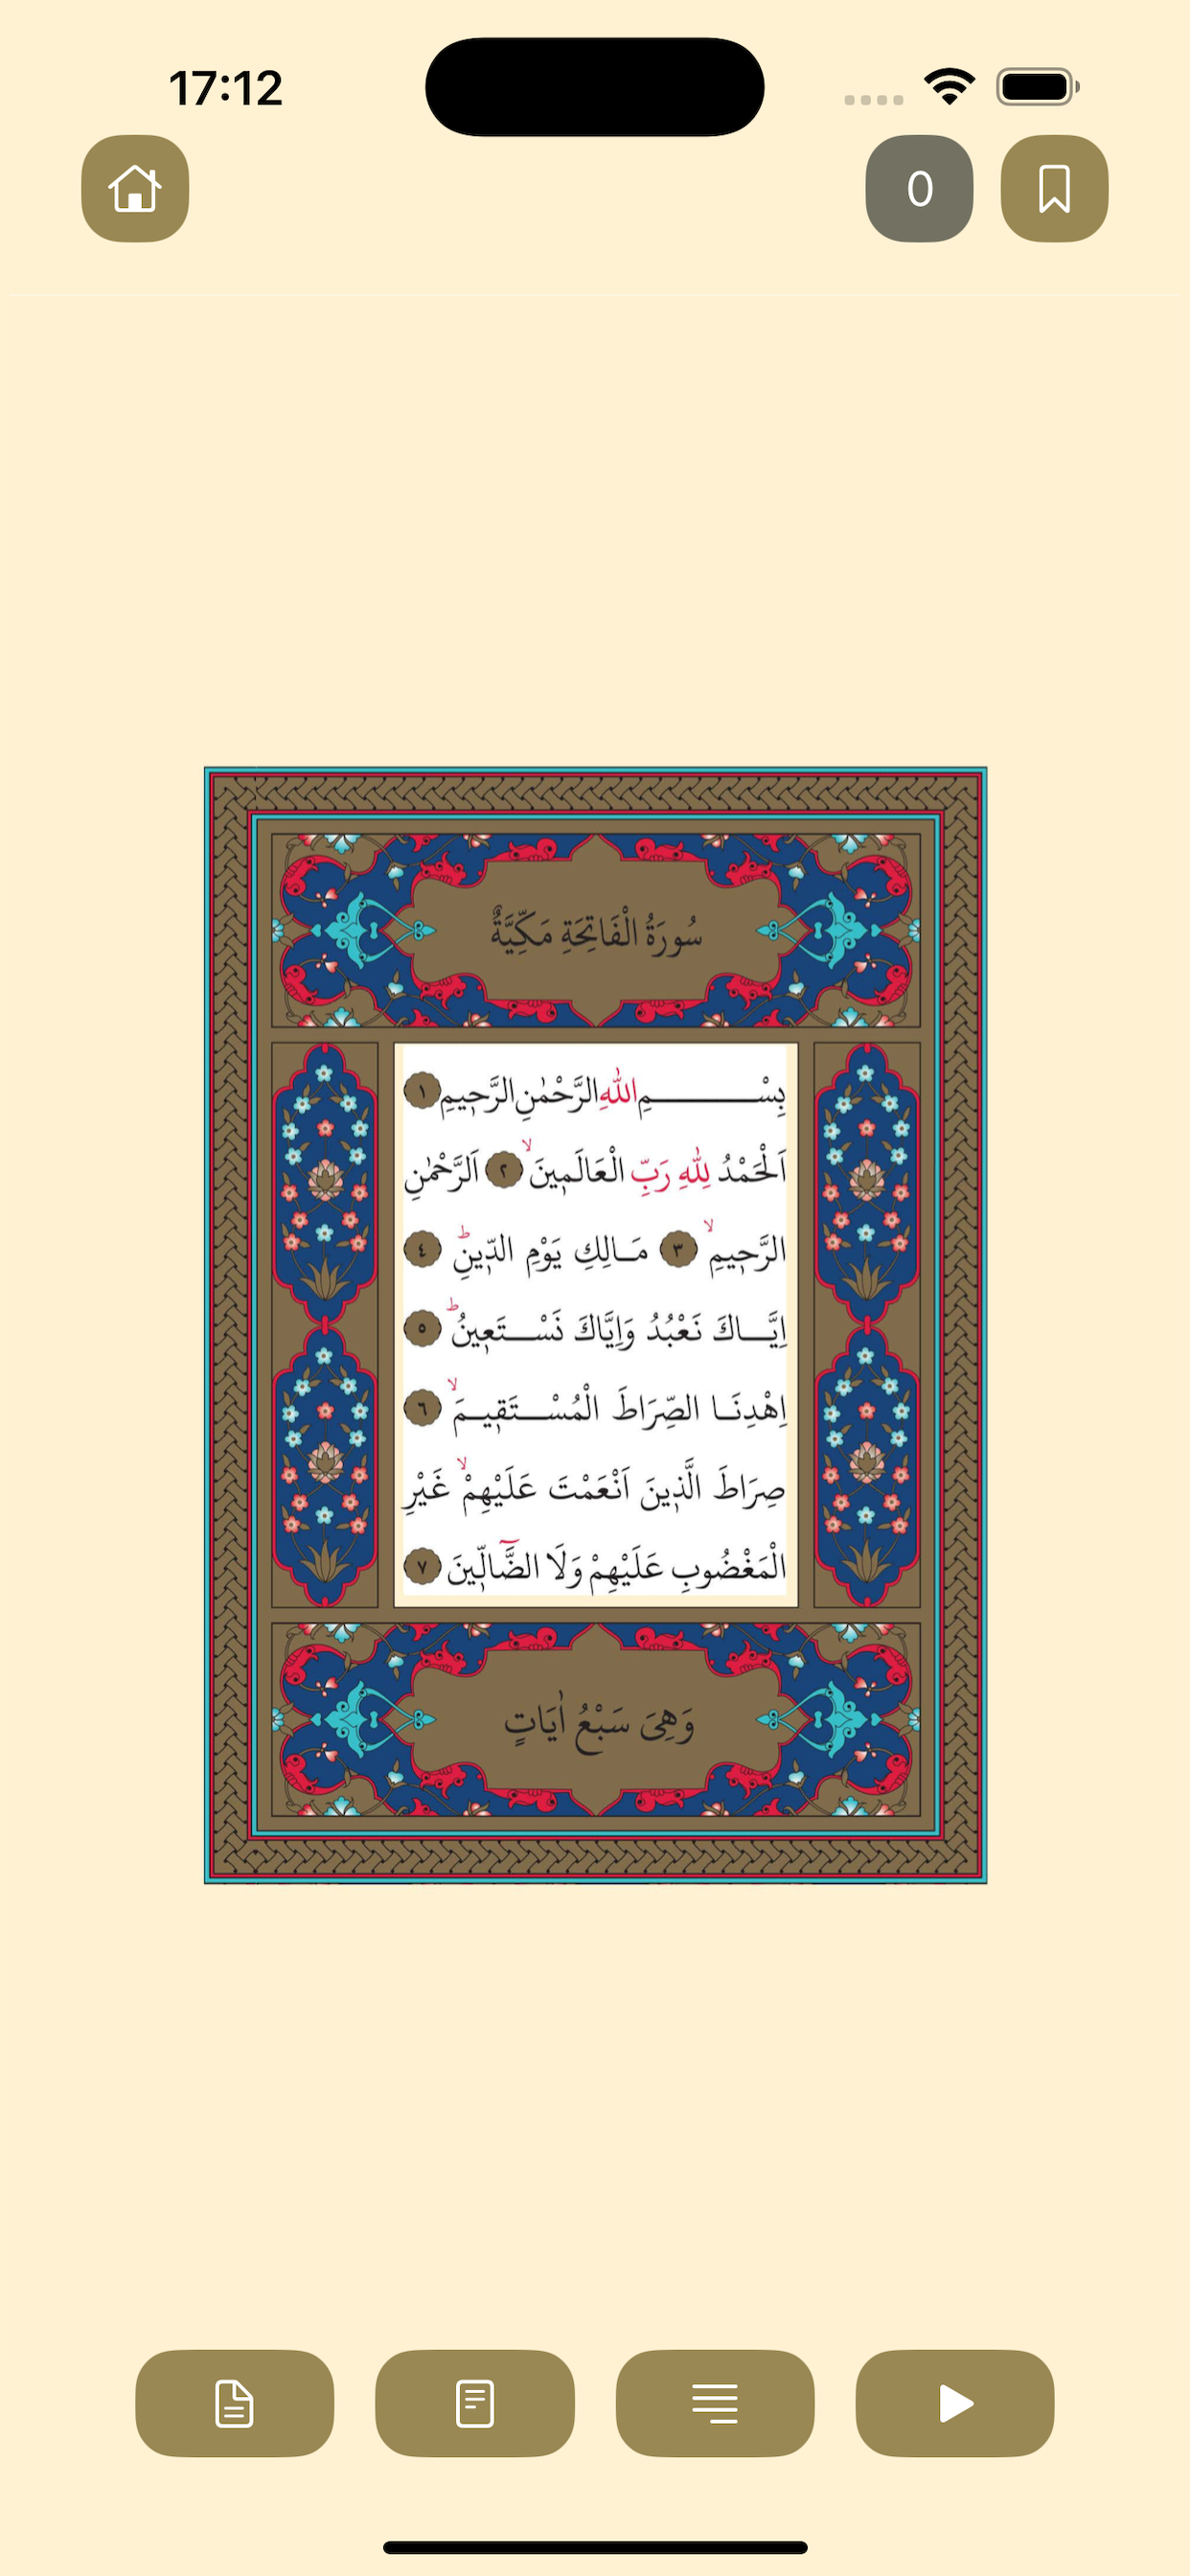 17:12
0
سُورَةُ الْفَاتِحَةِ مَكِّيَّةٌ
بِسْـــــــــمِ اللّٰهِ الرَّحْمٰنِ الرَّحٖيمِ ١
اَلْحَمْدُ لِلّٰهِ رَبِّ الْعَالَمٖينَۙ ٢ اَلرَّحْمٰنِ
الرَّحٖيمِۙ ٣ مَـالِكِ يَوْمِ الدّٖينِؕ ٤
اِيَّـــاكَ نَعْبُدُ وَاِيَّاكَ نَسْـــتَعٖينُؕ ٥
اِهْدِنَـا الصِّرَاطَ الْمُسْـــتَقٖيـمَۙ ٦
صِرَاطَ الَّذٖينَ اَنْعَمْتَ عَلَيْهِمْۙ غَيْرِ
الْمَغْضُوبِ عَلَيْهِمْ وَلَا الضَّٓالّٖينَ ٧
وَهِىَ سَبْعُ اٰيَاتٍ